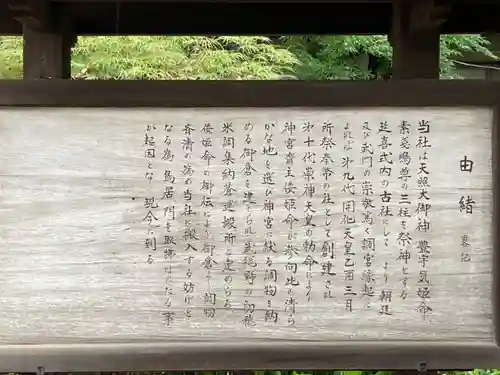 由緒 裏記
当社は天照大御神 豊宇気姫命
素盞嗚尊の三柱を祭神とする
延喜式内の古社として より朝廷
及び武門の崇敬篤く調宮縁起に
よれば 第九代開化天皇乙酉三月
所祭奉幣の社として創建され
第十代崇神天皇の勅命により
神宮斎主倭姫命が参向此の清ら
かな地を選び神宮に献る調物を納
める御倉を建てられ武総野の初穂
米調集納蒼運搬所と定めらる
倭姫命の御伝により御倉より調物
斉清の為の当社に搬入する妨げと
なる為 鳥居 門を取拂はれたる事
が起因となり 現今に到る